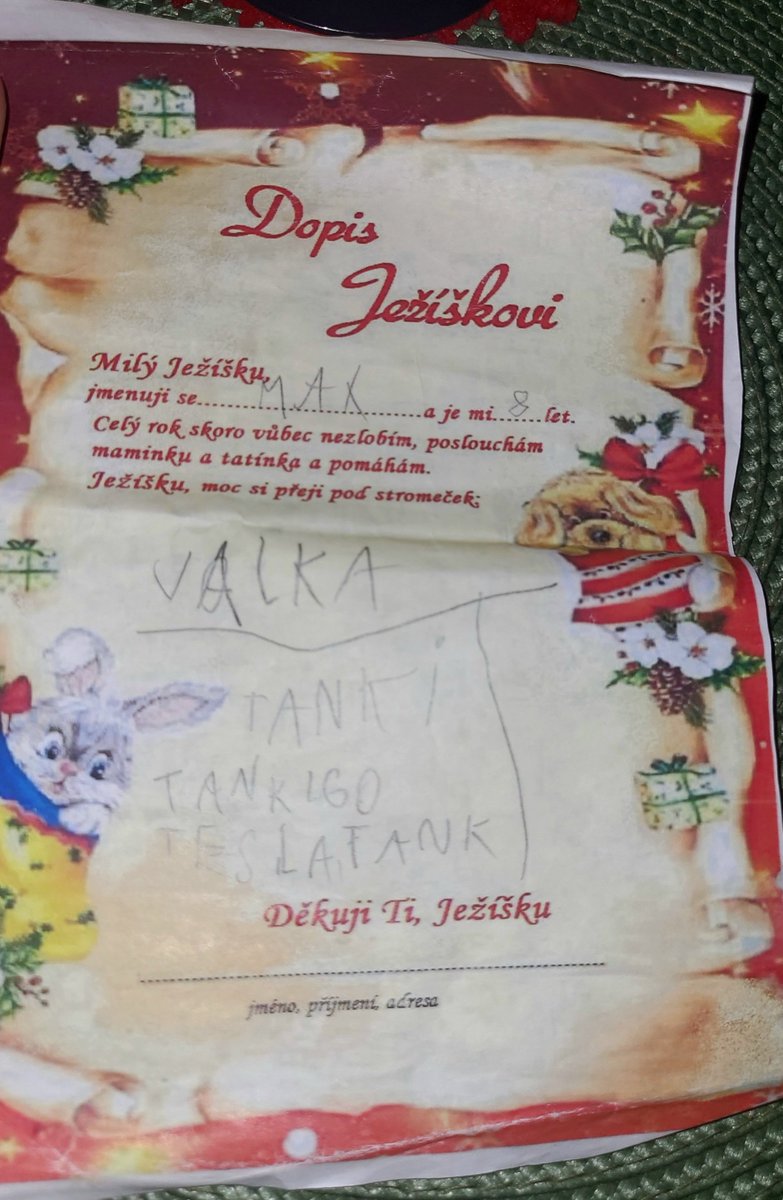 Dopis
Ježíškovi
Milý Ježíšku,
jmenuji se...MAX...a je mi...8...let.
Celý rok skoro vůbec nezlobím, poslouchám
maminku a tatínka a pomáhám.
Ježíšku, moc si přeji pod stromeček:
VALKA
TANKi
TANK160
TESLATANK
Děkuji Ti, Ježíšku
jméno, příjmení, adresa